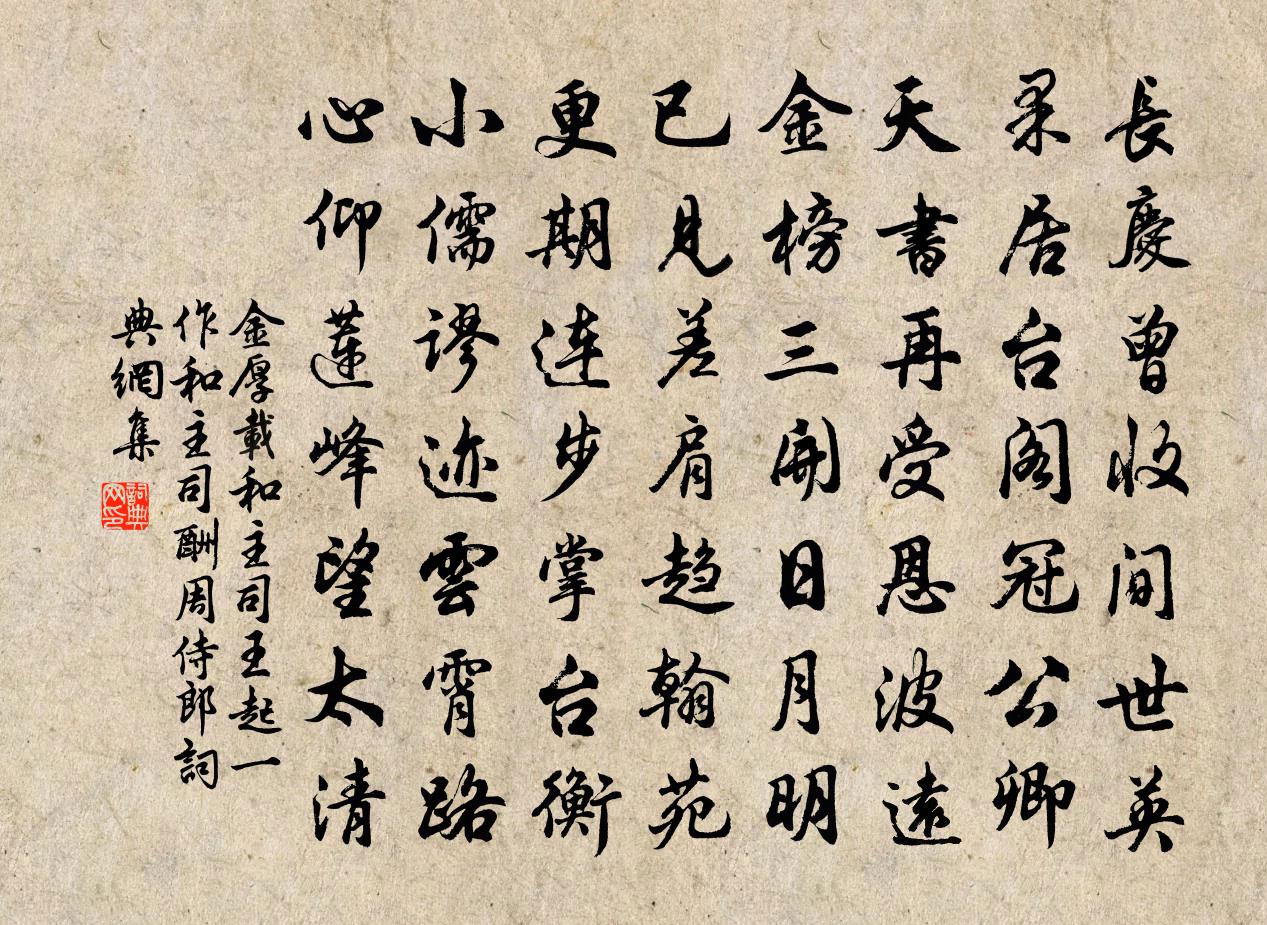 長慶曾收間世英
果居台閣冠公卿
天書再受恩波遠
金榜三開日月明
已見差肩趨翰苑
更期連步掌台衡
小儒謬迹雲霄路
心仰蓮峰望太清
金厚載和主司王起一
作和主司酬周侍郎詞
典網集
詞典
网印